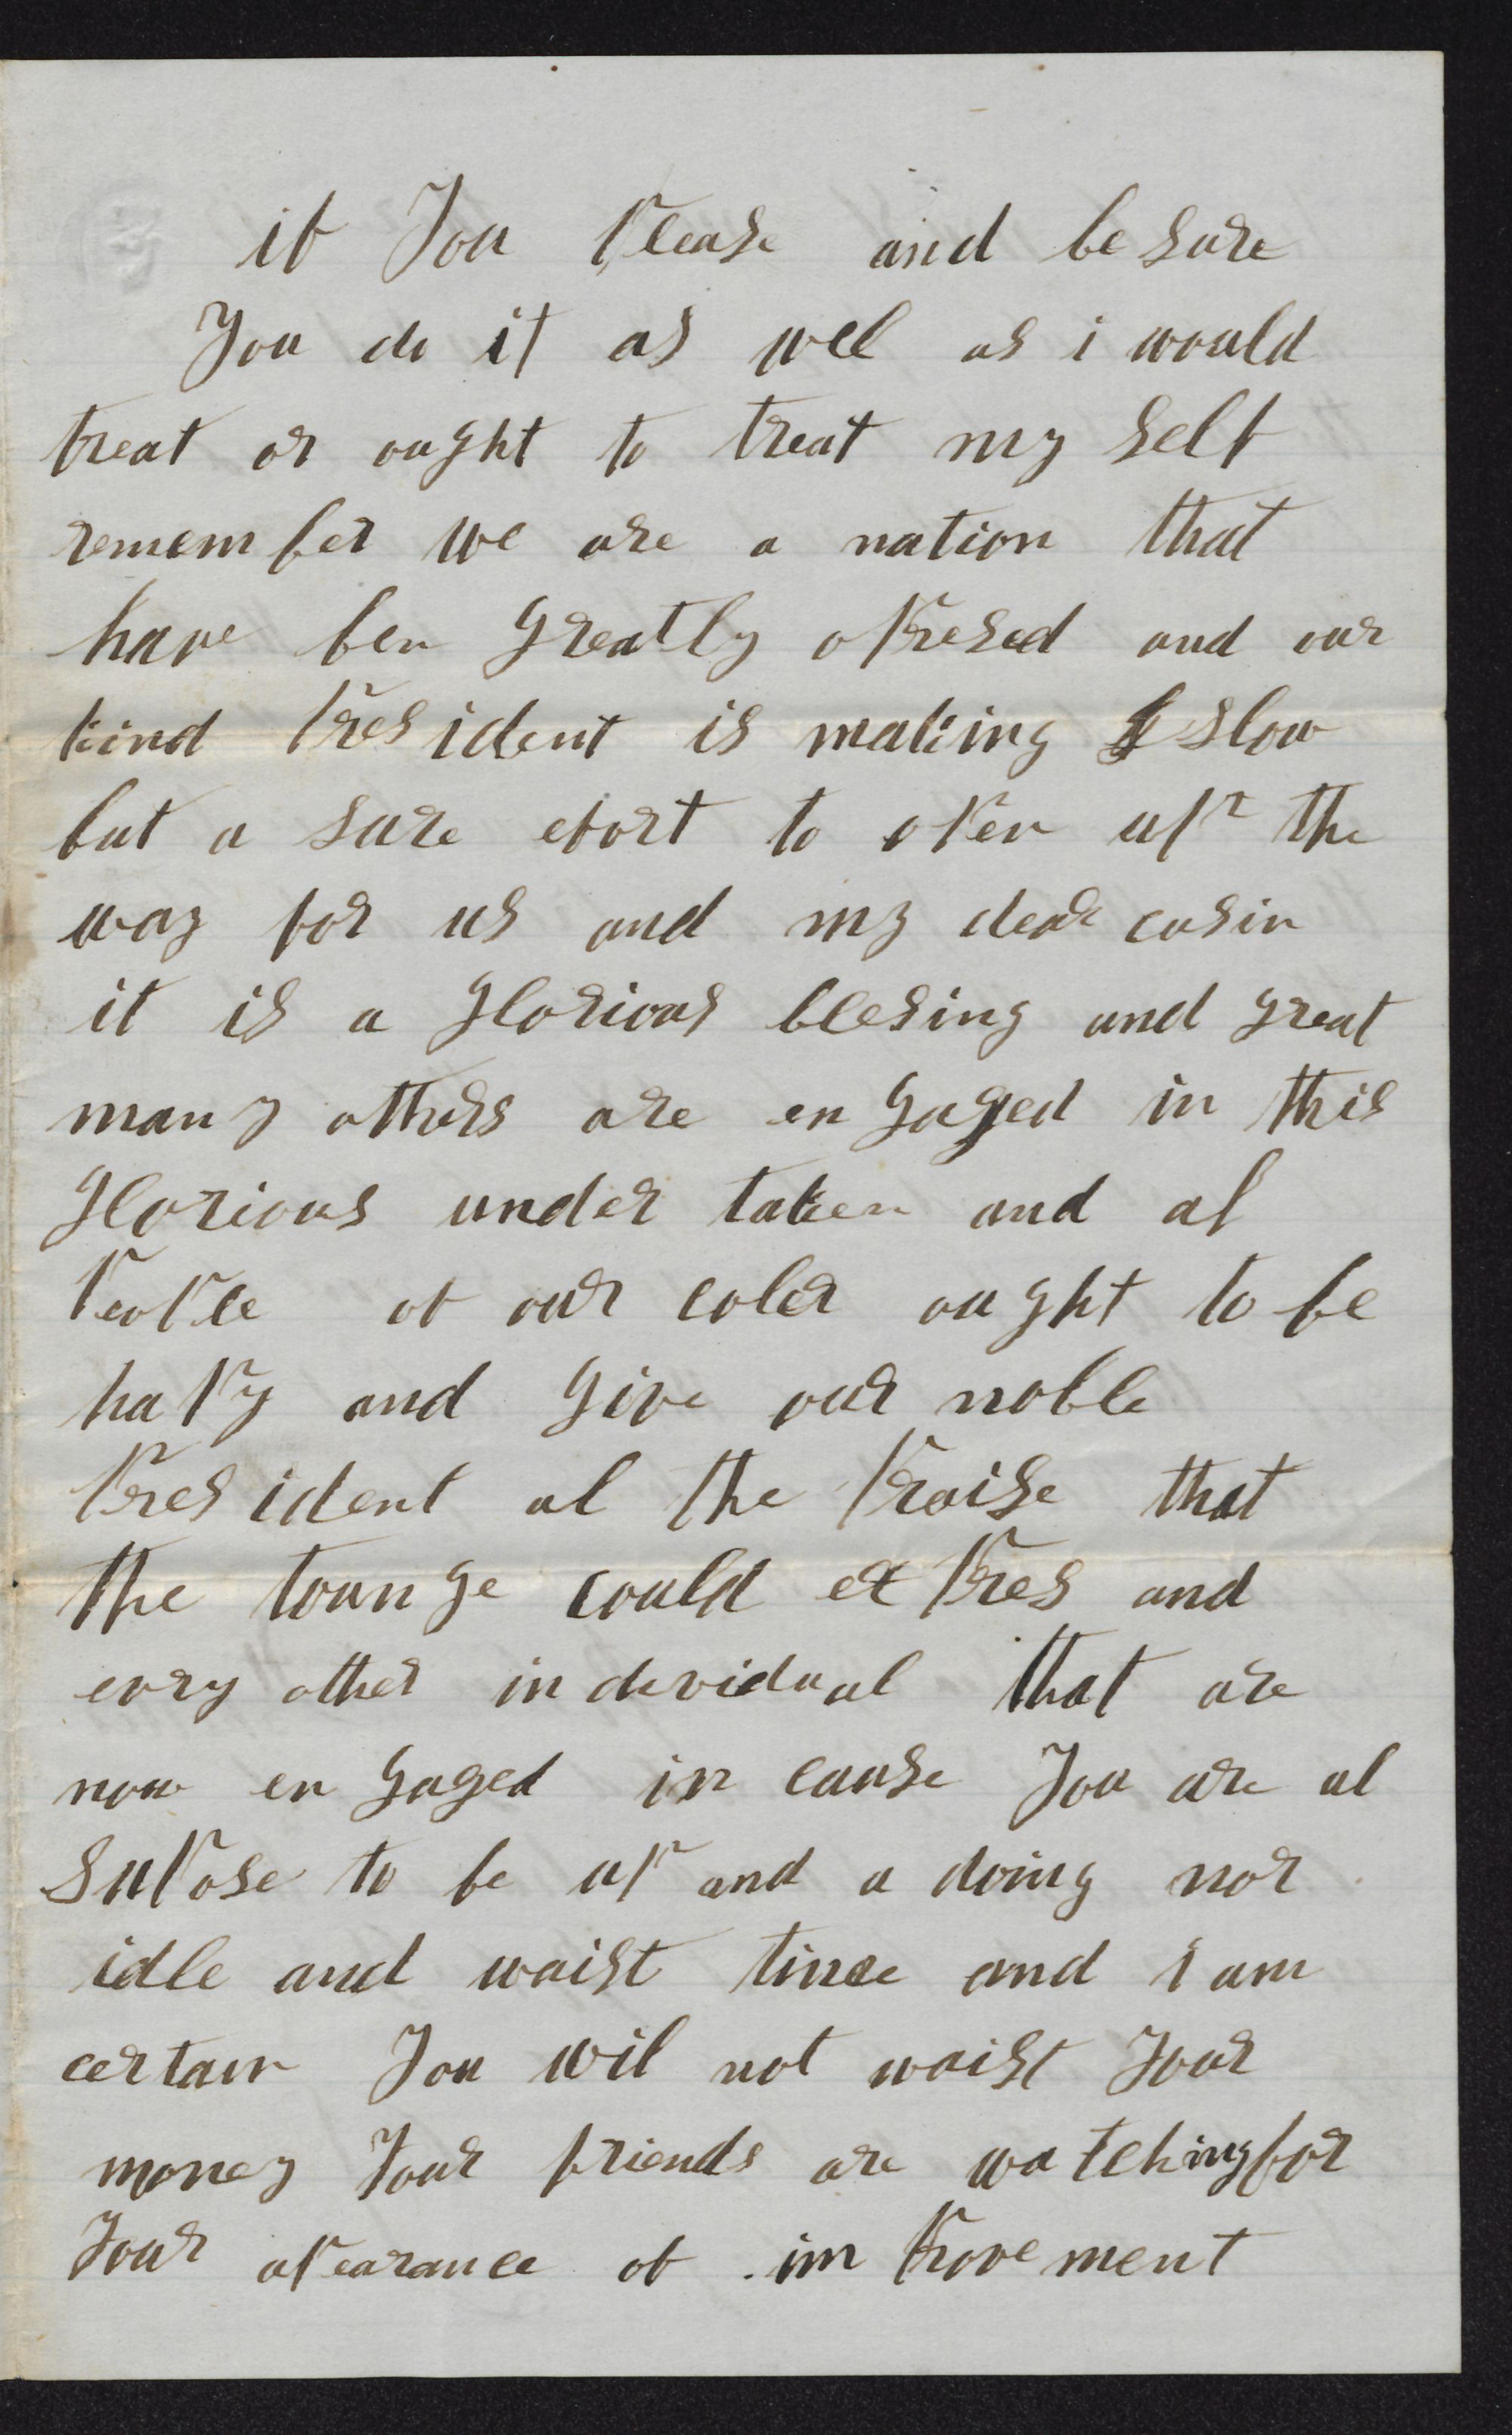 if You Please and be sure
You do it as well as i would
treat or ought to treat my self
remem ber we are a nation that
have ben greatly opresed and our
kind Pres ident is making slow
but a sure efort to open up the
way for us and my dear cusin
it is a glorious blesing and great
many others are en gaged in this
glorious under taken and al
People of our coler ought to be
happy and give our noble
Pres ident al the Praise that
the tounge could ex Pres and
evry other in devidual that are
now en gaged in cause You are al
supose to be up and a doing nor
idle and waist time and i am
certain You wil not waist Your
money Your friends are watching for
Your apearance of im Prove ment